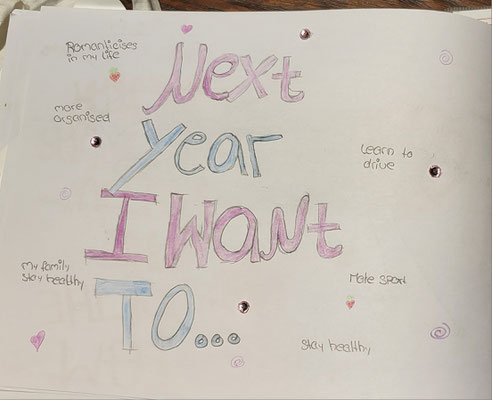 Romanticises
in my life
Next
more
organised
Year
Learn to
drive
I Want
my family
stay healthy
Make sport
To...
stay healthy